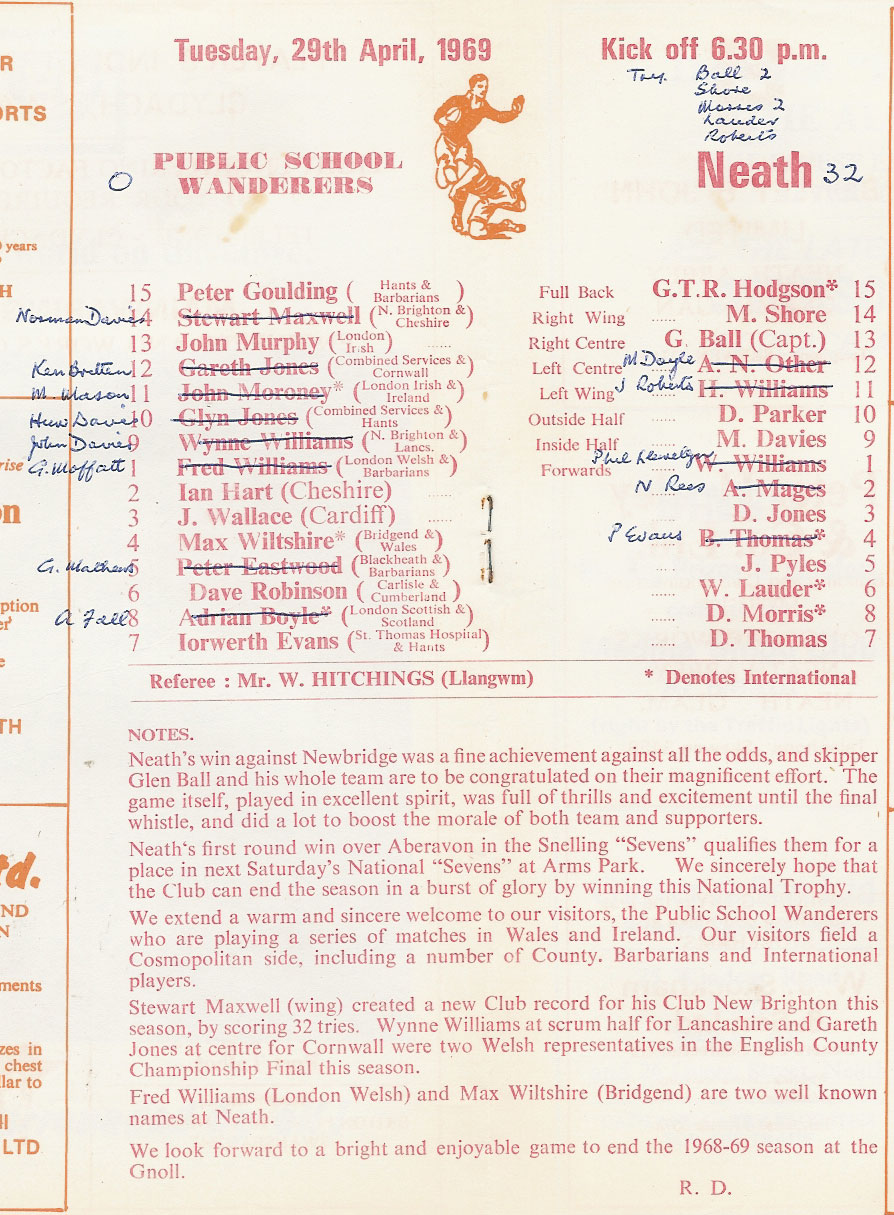 Tuesday, 29th April, 1969
Kick off 6.30 p.m.
Try. Ball 2
Shore
Morris 2
Lauder
Roberts
O PUBLIC SCHOOL
WANDERERS
Neath 32
15 Peter Goulding (Hants & Barbarians) Full Back G.T.R. Hodgson* 15
Norman Davies 14 Stewart Maxwell (N. Brighton & Cheshire) Right Wing ...... M. Shore 14
13 John Murphy (London Irish) ...... Right Centre G. Ball (Capt.) 13
Ken Bretten 12 Gareth Jones (Combined Services & Cornwall) Left Centre M Doyle A. N. Other 12
M. Mason 11 John Moroney* (London Irish & Ireland) Left Wing J Roberts H. Williams 11
Huw Davies 10 Glyn Jones (Combined Services & Hants) Outside Half D. Parker 10
John Davies 9 Wynne Williams (N. Brighton & Lancs.) Inside Half M. Davies 9
G. Moffatt 1 Fred Williams (London Welsh & Barbarians) Forwards Phil Llewelyn W. Williams 1
2 Ian Hart (Cheshire) ...... N Rees A. Mages 2
3 J. Wallace (Cardiff) ...... D. Jones 3
4 Max Wiltshire* (Bridgend & Wales) P Evans B. Thomas* 4
G. Mathews 5 Peter Eastwood (Blackheath & Barbarians) J. Pyles 5
6 Dave Robinson (Carlisle & Cumberland) W. Lauder* 6
A Fall 8 Adrian Boyle* (London Scottish & Scotland) D. Morris* 8
7 Iorwerth Evans (St. Thomas Hospital & Hants) D. Thomas 7
Referee : Mr. W. HITCHINGS (Llangwm) * Denotes International
NOTES.
Neath's win against Newbridge was a fine achievement against all the odds, and skipper
Glen Ball and his whole team are to be congratulated on their magnificent effort. The
game itself, played in excellent spirit, was full of thrills and excitement until the final
whistle, and did a lot to boost the morale of both team and supporters.
Neath's first round win over Aberavon in the Snelling "Sevens" qualifies them for a
place in next Saturday's National "Sevens" at Arms Park. We sincerely hope that
the Club can end the season in a burst of glory by winning this National Trophy.
We extend a warm and sincere welcome to our visitors, the Public School Wanderers
who are playing a series of matches in Wales and Ireland. Our visitors field a
Cosmopolitan side, including a number of County. Barbarians and International
players.
Stewart Maxwell (wing) created a new Club record for his Club New Brighton this
season, by scoring 32 tries. Wynne Williams at scrum half for Lancashire and Gareth
Jones at centre for Cornwall were two Welsh representatives in the English County
Championship Final this season.
Fred Williams (London Welsh) and Max Wiltshire (Bridgend) are two well known
names at Neath.
We look forward to a bright and enjoyable game to end the 1968-69 season at the
Gnoll.
R. D.
R
ORTS
years
H
rise
n
ption
er
e
TH
td.
ND
N
ments
zes in
chest
lar to
ll
LTD